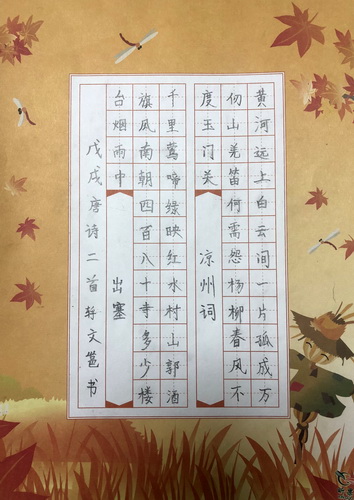 黄河远上白云间一片孤成万
仞山羌笛何需怨杨柳春风不
度玉门关
凉州词
千里莺啼绿映红水村山郭酒
旗风南朝四百八十寺多少楼
台烟雨中
出塞
戊戌唐诗二首轩文书